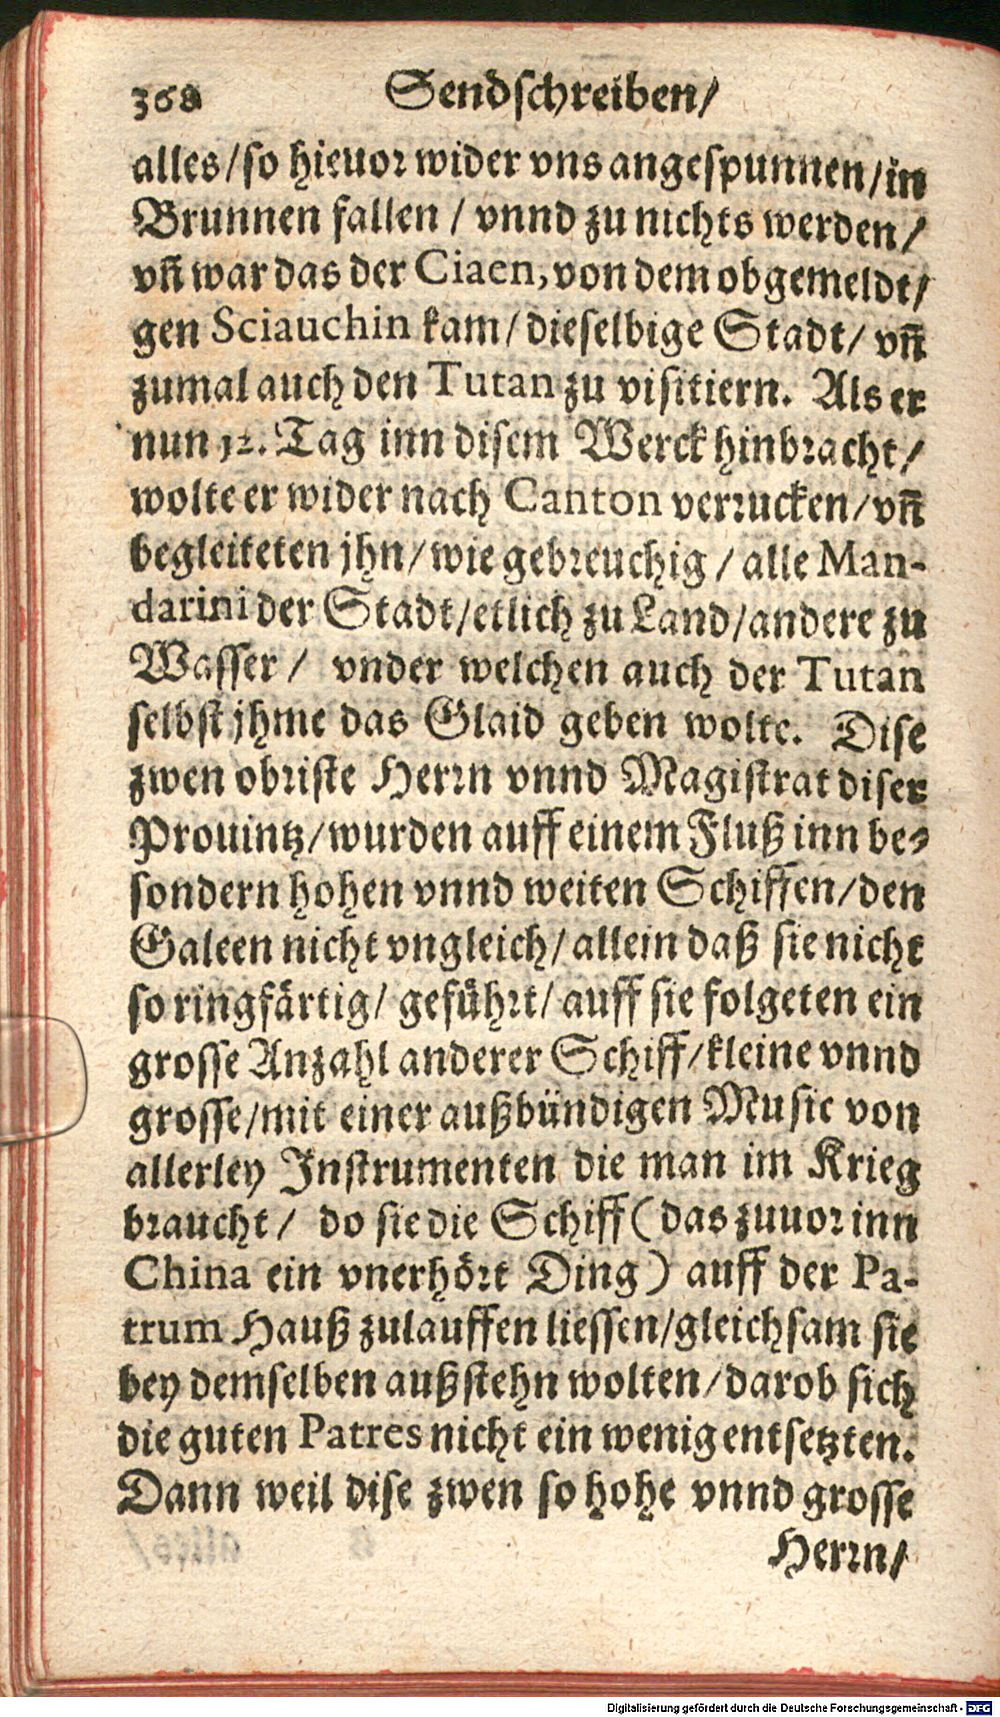 368 Sendschreiben/
alles/so hieuor wider vns angespunnen/in
Brunnen fallen / vnnd zu nichts werden/
vñ war das der Ciaen, von dem obgemeldt/
gen Sciauchin kam/ dieselbige Stadt/ vñ
zumal auch den Tutan zu visitiern. Als er
nun 12. Tag inn disem Werck hinbracht/
wolte er wider nach Canton verrucken/vñ
begleiteten jhn/wie gebreuchig / alle Man-
darini der Stadt/etlich zu Land/andere zu
Wasser/ vnder welchen auch der Tutan
selbst jhme das Glaid geben wolte. Dise
zwen obriste Herrn vnnd Magistrat diser
Prouintz/wurden auff einem Fluß inn be-
sondern hohen vnnd weiten Schiffen/den
Galeen nicht vngleich/allein daß sie nicht
so ringfärtig/ geführt/ auff sie folgeten ein
grosse Anzahl anderer Schiff/kleine vnnd
grosse/mit einer außbündigen Music von
allerley Instrumenten die man im Krieg
braucht/ do sie die Schiff (das zuuor inn
China ein vnerhört Ding) auff der Pa-
trum Hauß zulauffen liessen/gleichsam sie
bey demselben außstehn wolten/darob sich
die guten Patres nicht ein wenig entsetzten.
Dann weil dise zwen so hohe vnnd grosse
Herrn/
Digitalisierung gefördert durch die Deutsche Forschungsgemeinschaft - DFG